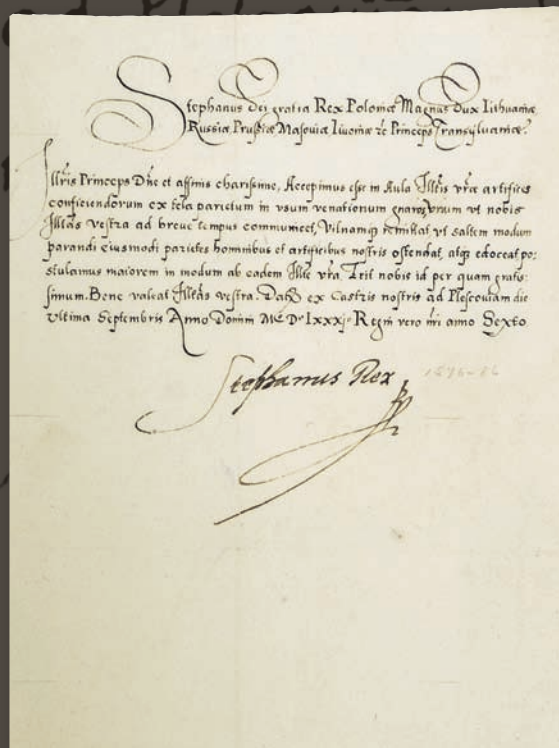 ad Plescoviam
Stephanus Dei gratia Rex Poloniæ Magnus Dux Lithuaniæ
Russiæ Prussiæ Masoviæ Livoniæ etc Princeps Transylvaniæ.
Illris Princeps Dne et affinis charissime, Accepimus esse in Aula Illris vræ artifices
conficiendorum ex tela parietum in usum venationum gnaros, ut nobis
Illtas Vestra ad breve tempus communicet, Vilnamq remittat, ut saltem modum
parandi eiusmodi parietes hominibus et artificibus nostris ostendat, atq edoceat, po:
stulamus maiorem in modum ab eadem Illte vra. Erit nobis id per quam gratis:
simum. Bene valeat Illtas vestra. Dat ex Castris nostris ad Plescoviam die
Ultima Septembris Anno Domini MDLXXXj. Regni vero nri anno Sexto
Stephanus Rex
1576-86